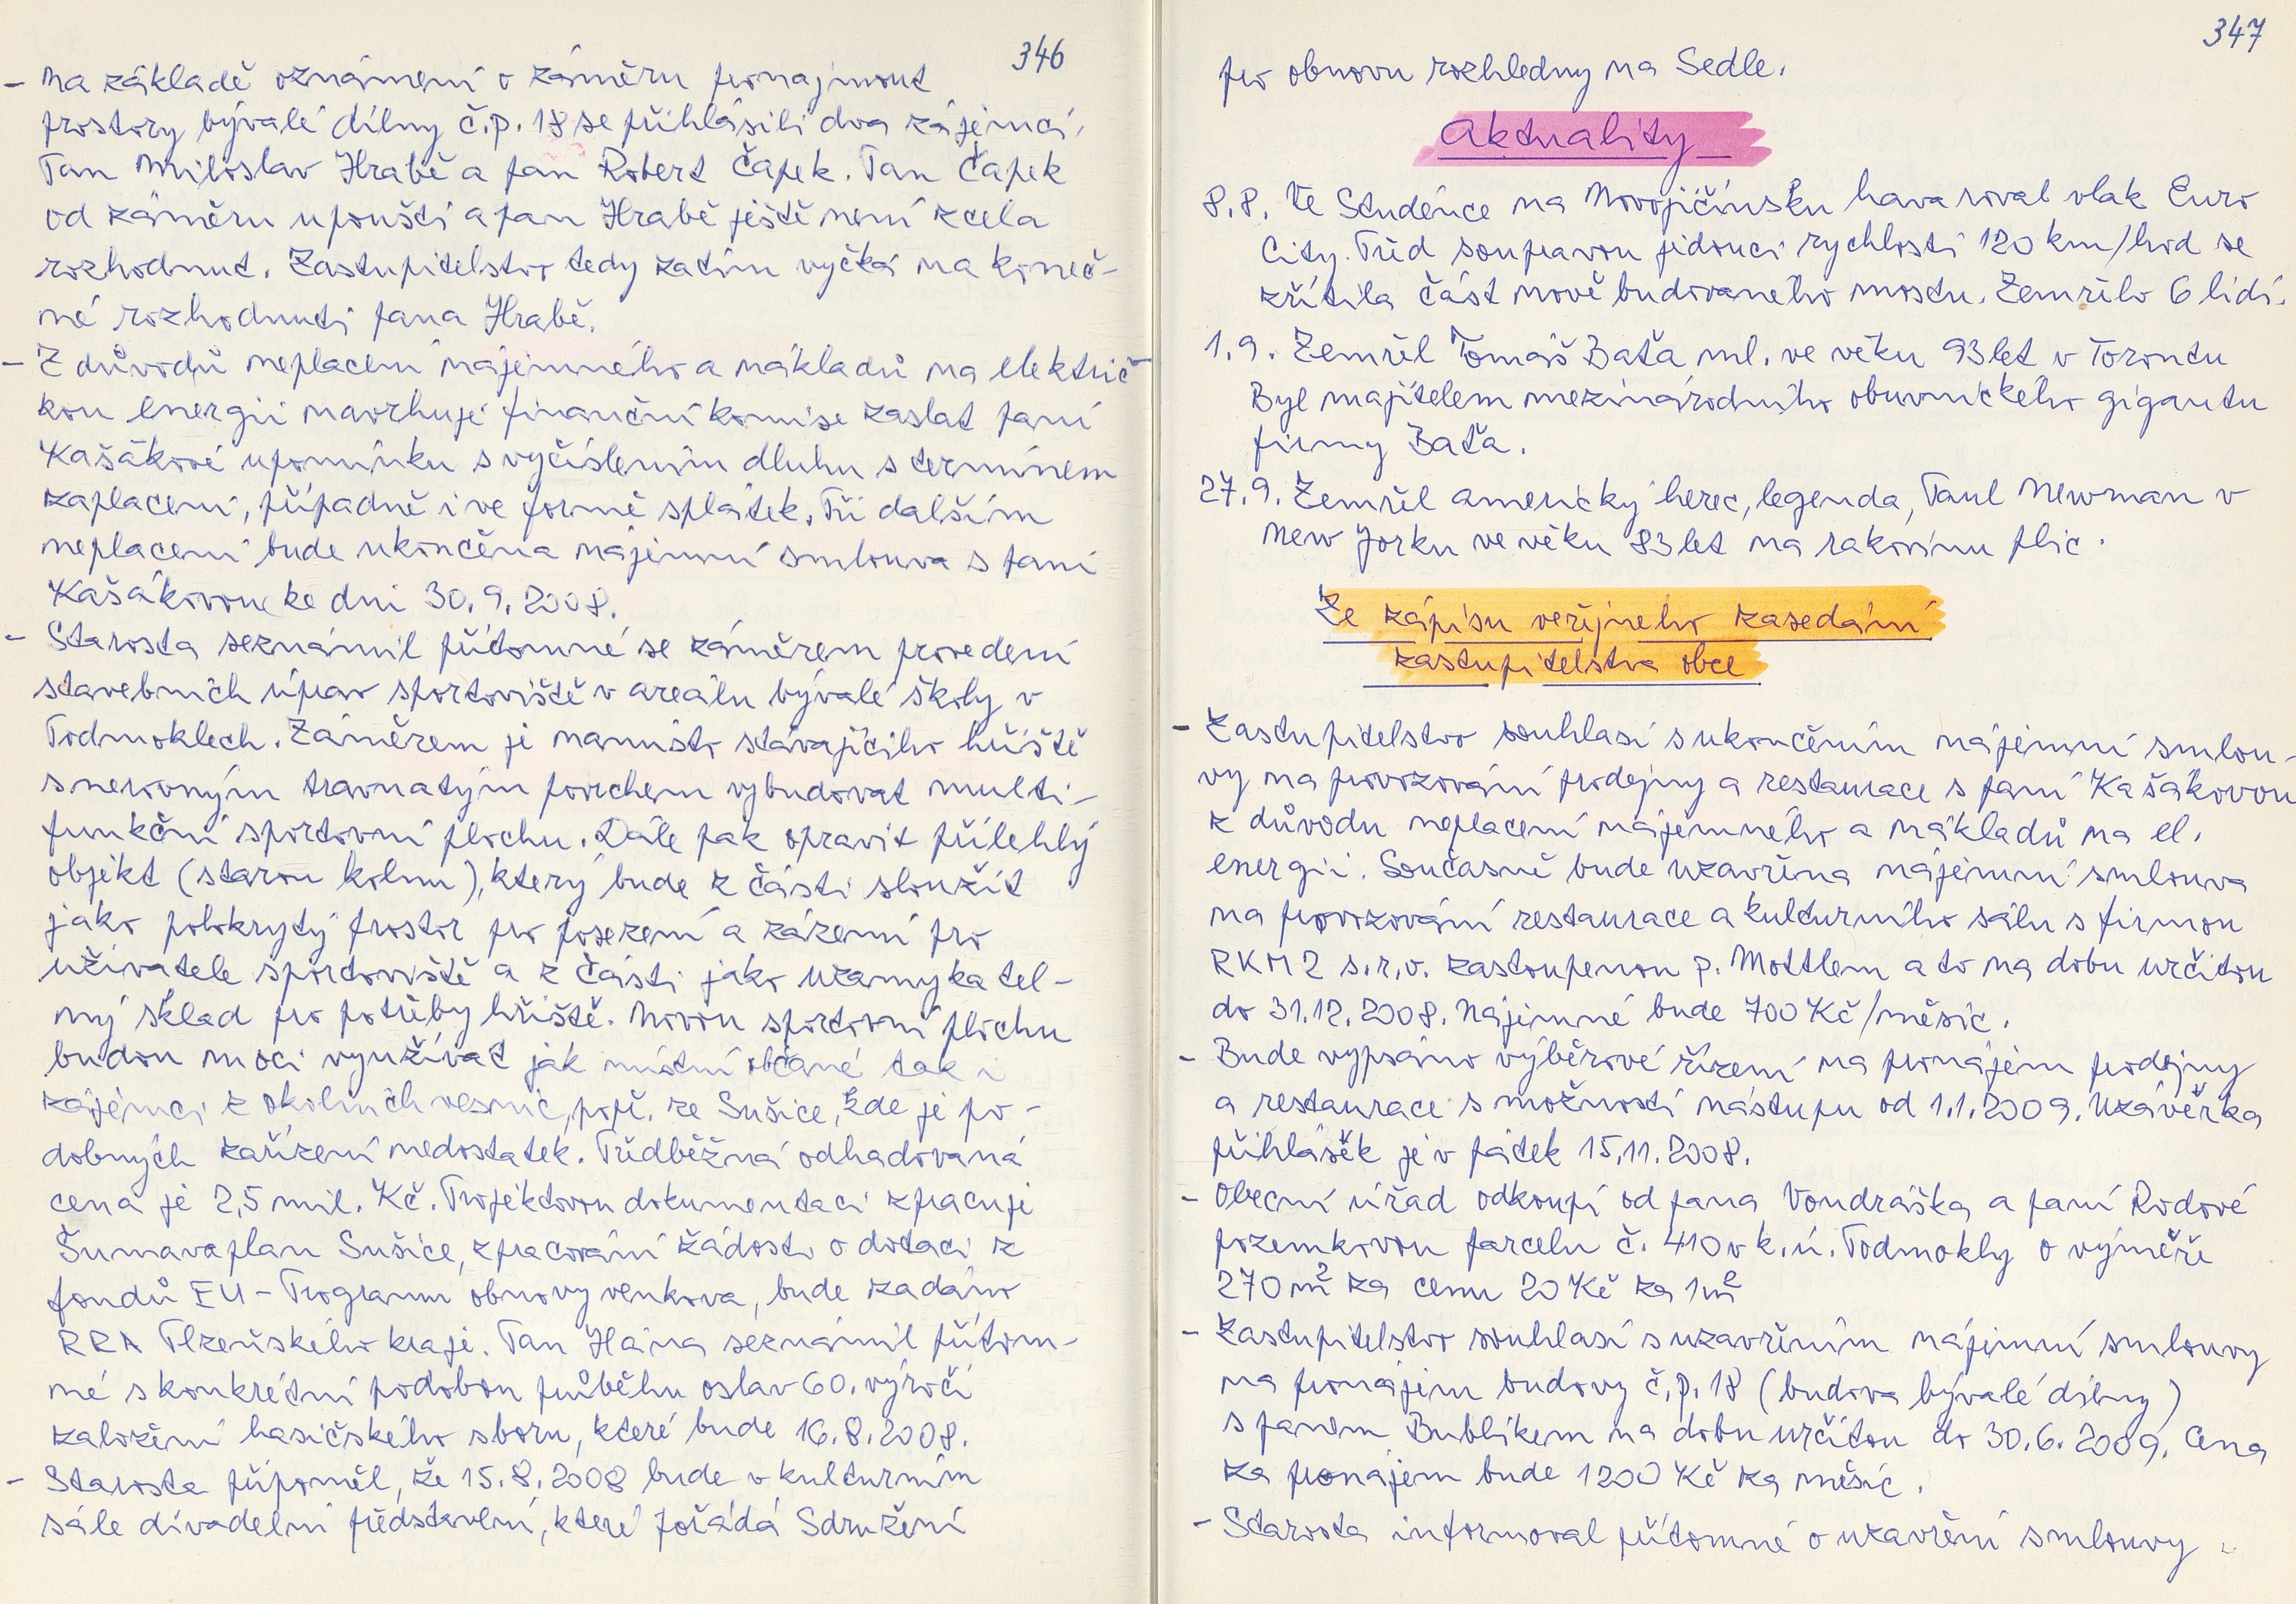 346
- Na základě oznámení o záměru pronajmout
prostory bývalé dílny č.p. 18 se přihlásili dva zájemci,
Pan Miloslav Hrabě a pan Robert Čapek. Pan Čapek
od záměru upouští a pan Hrabě ještě není zcela
rozhodnut. Zastupitelstvo tedy zatím vyčká na koneč-
né rozhodnutí pana Hrabě.
- Z důvodů neplacení nájemného a nákladů na elektric-
kou energii navrhuje finanční komise zaslat paní
Kašákové upomínku s vyčíslením dluhu s termínem
zaplacení, případně i ve formě splátek. Při dalším
neplacení bude ukončena nájemní smlouva s paní
Kašákovou ke dni 30.9.2008.
- Starosta seznámil přítomné se záměrem provedení
stavebních úprav sportoviště v areálu bývalé školy v
Podmoklech. Záměrem je namísto stávajícího hřiště
s nerovným travnatým povrchem vybudovat multi-
funkční sportovní plochu. Dále pak opravit přilehlý
objekt (starou kolnu), který bude z části sloužit
jako polokrytý prostor pro posezení a zázemí pro
uživatele sportoviště a z části jako uzamykatel-
ný sklad pro potřeby hřiště. Novou sportovní plochu
budou moci využívat jak místní občané tak i
zájemci z okolních vesnic, popř. ze Sušice, kde je po-
dobných zařízení nedostatek. Předběžná odhadovaná
cena je 2,5 mil. Kč. Projektovou dokumentaci zpracuje
Šumavaplan Sušice, zpracování žádosti o dotaci z
fondů EU - Program obnovy venkova, bude zadáno
RRA Plzeňského kraje. Pan Hána seznámil přítom-
né s konkrétní podobou průběhu oslav 60. výročí
založení hasičského sboru, které bude 16.8.2008.
- Starosta připoměl, že 15.8.2008 bude v kulturním
sále divadelní představení, které pořádá Sdružení
347
pro obnovu rozhledny na Sedle.
Aktuality
8.8. Ve Studénce na Novojičínsku havaroval vlak Euro
City. Před soupravou jedoucí rychlostí 120 km/hod se
zřítila část nově budovaného mostu. Zemřelo 6 lidí.
1.9. Zemřel Tomáš Baťa ml. ve věku 93 let v Torontu
Byl majitelem mezinárodního obuvnického gigantu
firmy Baťa.
27.9. Zemřel americký herec, legenda, Paul Newman v
New Yorku ve věku 83 let na rakovinu plic.
Ze zápisu veřejného zasedání
zastupitelstva obce
- Zastupitelstvo souhlasí s ukončením nájemní smlou-
vy na provozování prodejny a restaurace s paní Kašákovou
z důvodu neplacení nájemného a nákladů na el.
energii. Současně bude uzavřena nájemní smlouva
na provozování restaurace a kulturního sálu s firmou
RKM2 s.r.o. zastoupenou p. Mottlem a to na dobu určitou
do 31.12.2008. Nájemné bude 700 Kč/měsíc.
- Bude vypsáno výběrové řízení na pronájem prodejny
a restaurace s možností nástupu od 1.1.2009. Uzávěrka
přihlášek je v pátek 15.11.2008.
- Obecní úřad odkoupí od pana Vondráška a paní Rodové
pozemkovou parcelu č. 410 v k.ú. Podmokly o výměře
270 m² za cenu 20 Kč za 1m²
- Zastupitelstvo souhlasí s uzavřením nájemní smlouvy
na pronájem budovy č.p. 18 (budova bývalé dílny)
s panem Bublíkem na dobu určitou do 30.6.2009. Cena
za pronájem bude 1200 Kč za měsíc.
- Starosta informoval přítomné o uzavření smlouvy